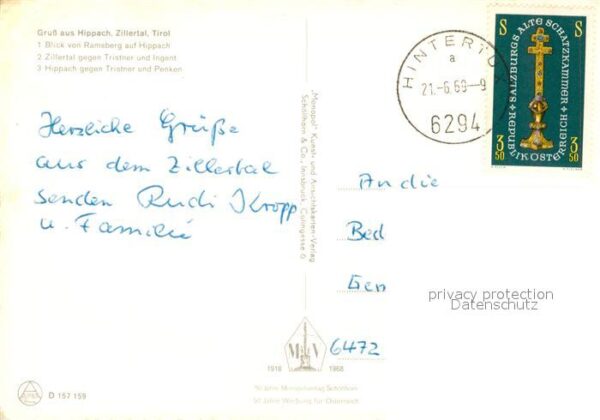 Gruß aus Hippach, Zillertal, Tirol
1 Blick von Ramsberg auf Hippach
2 Zillertal gegen Tristner und Ingent
3 Hippach gegen Tristner und Penken
Herzliche Grüße
aus dem Zillertal
senden Rudi Kropp
u. Familie
D 157 159
„Monopol" Kunst- und Ansichtskarten-Verlag
Schöllhorn & Co., Innsbruck, Colingasse 6
1918 M V 1968
50 Jahre Monopolverlag Schöllhorn
50 Jahre Werbung für Österreich
HINTERTUX
a
21.-6.69-9
6294
S S
SALZBURGS ALTE SCHATZKAMMER
REPUBLIK ÖSTERREICH
3 50 3 50
An die
Bed
Gen
6472
privacy protection
Datenschutz